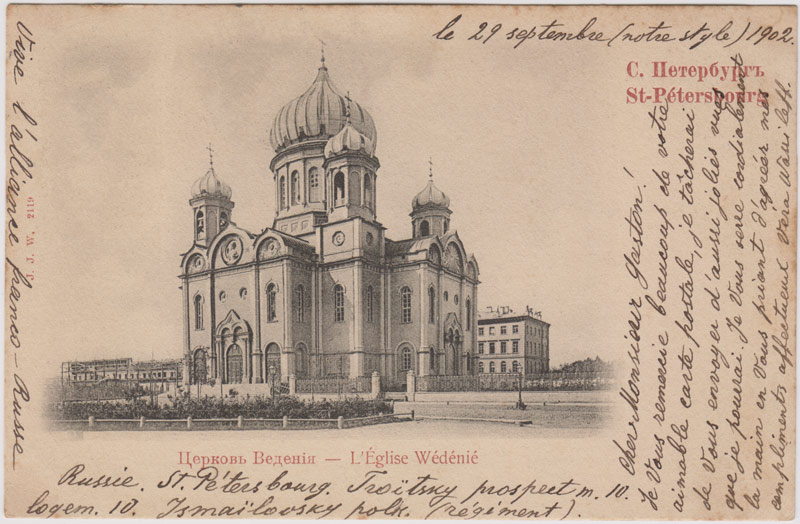 le 29 septembre (notre style) 1902.
С. Петербургъ
St-Pétersbourg
Cher Monsieur Gaston!
Je Vous remercie beaucoup de votre
aimable carte postale, je tâcherai
de Vous envoyer d'aussi jolies vues
que je pourrai. Je Vous serre cordialement
la main en Vous priant d'agréer mes
compliments affectueux Vera Wassileff.
Vive l'alliance franco-Russe
J. J. W. 2119
Церковь Веденія — L'Église Wédénié
Russie. St. Pétersbourg. Troïtsky prospect m. 10.
logem. 10. Ismaïlovsky polk. (régiment).